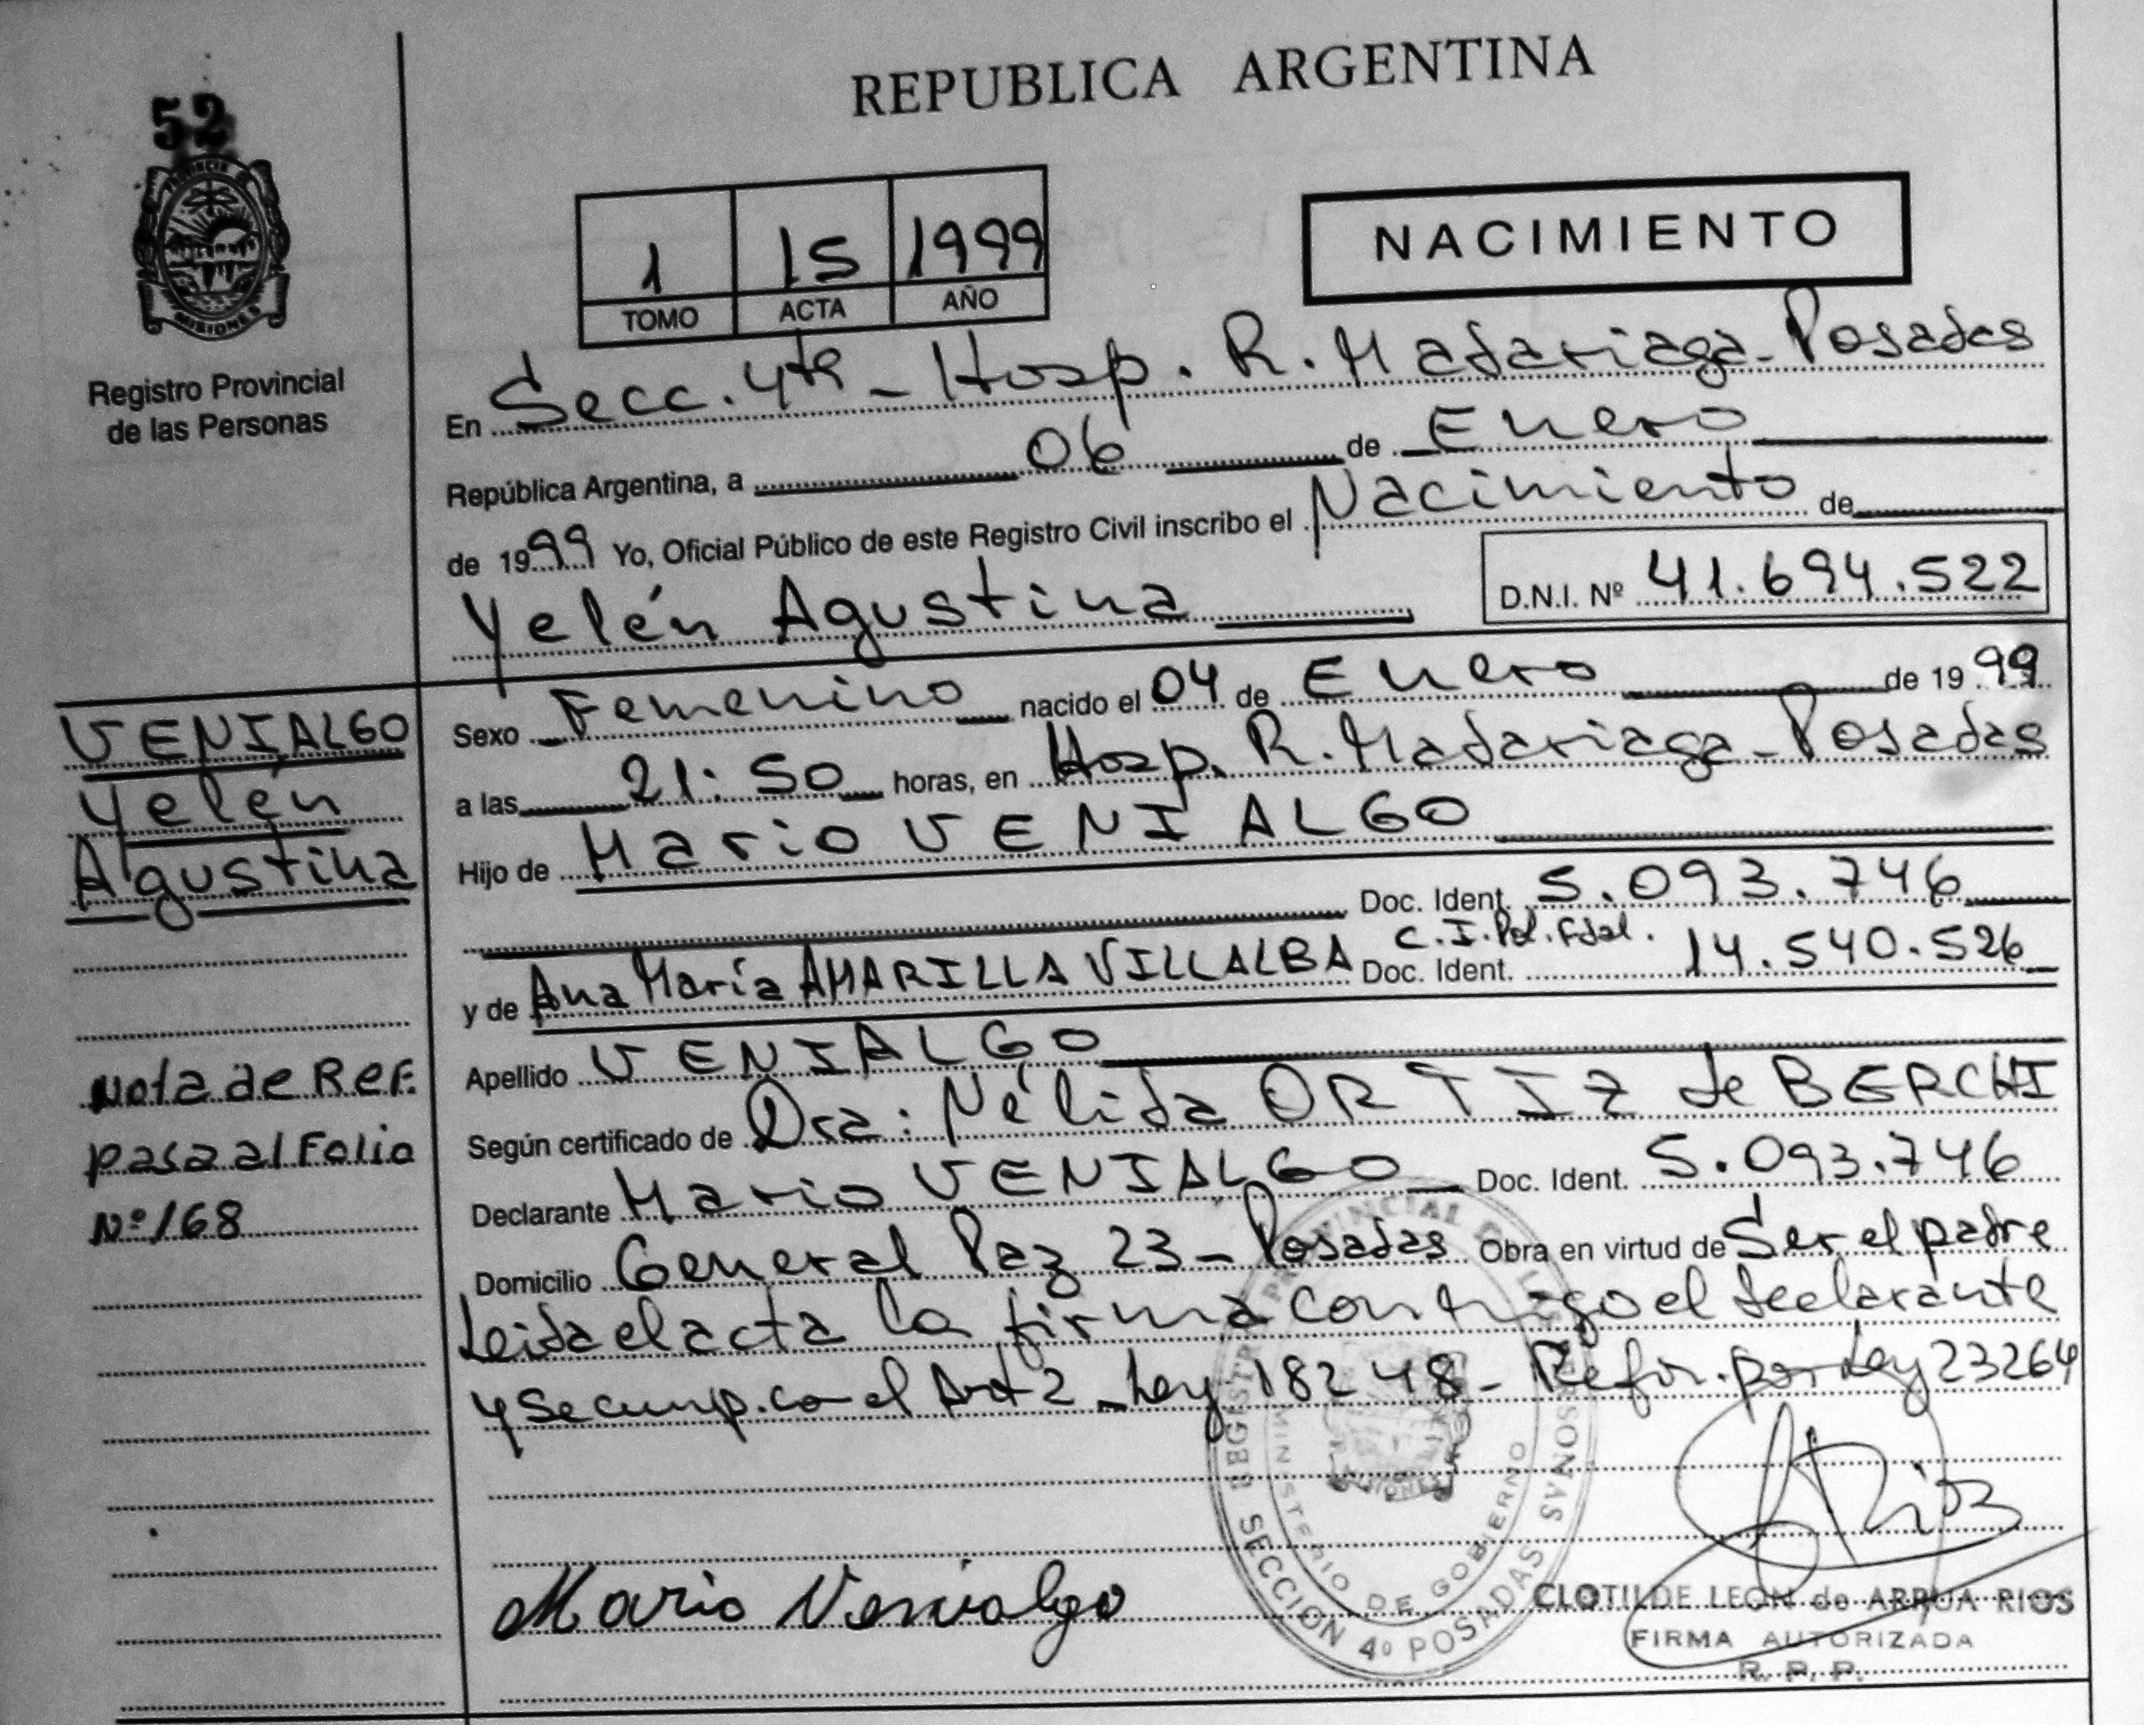 REPUBLICA ARGENTINA
52
PROVINCIA DE
MISIONES
Registro Provincial
de las Personas
1 15 1999
TOMO ACTA AÑO
NACIMIENTO
En Secc. 4ta - Hosp. R. Madariaga - Posadas
República Argentina, a 06 de Enero
de 1999 Yo, Oficial Público de este Registro Civil inscribo el Nacimiento de
D.N.I. Nº 41.694.522
Yelén Agustina
VENIALGO
Yelén
Agustina
Nota de Ref.
pasa al Folio
Nº 168
Sexo Femenino nacido el 04 de Enero de 1999
a las 21:50 horas, en Hosp. R. Madariaga - Posadas
Hijo de Mario VENIALGO
Doc. Ident. 5.093.746
C.I. Pol. Fdal.
y de Ana María AMARILLA VILLALBA Doc. Ident. 14.540.526
Apellido VENIALGO
Según certificado de Dra: Nélida ORTIZ de BERCHI
Declarante Mario VENIALGO Doc. Ident. 5.093.746
Domicilio General Paz 23 - Posadas Obra en virtud de Ser el padre
Leida el acta la firma conmigo el declarante
y se cump. con el Art 2 - Ley 18248 - Refor. por Ley 23264
Mario Venialgo
REGISTRO PROVINCIAL DE LAS PERSONAS
MINISTERIO DE GOBIERNO
SECCION 4º POSADAS
CLOTILDE LEON de ARRUA RIOS
FIRMA AUTORIZADA
R. P. P.